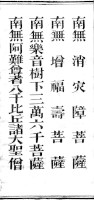 南無消災障菩薩
南無增福壽菩薩
南無樂音樹下三萬六千菩薩
南無阿難尊者八千比丘諸大聖僧